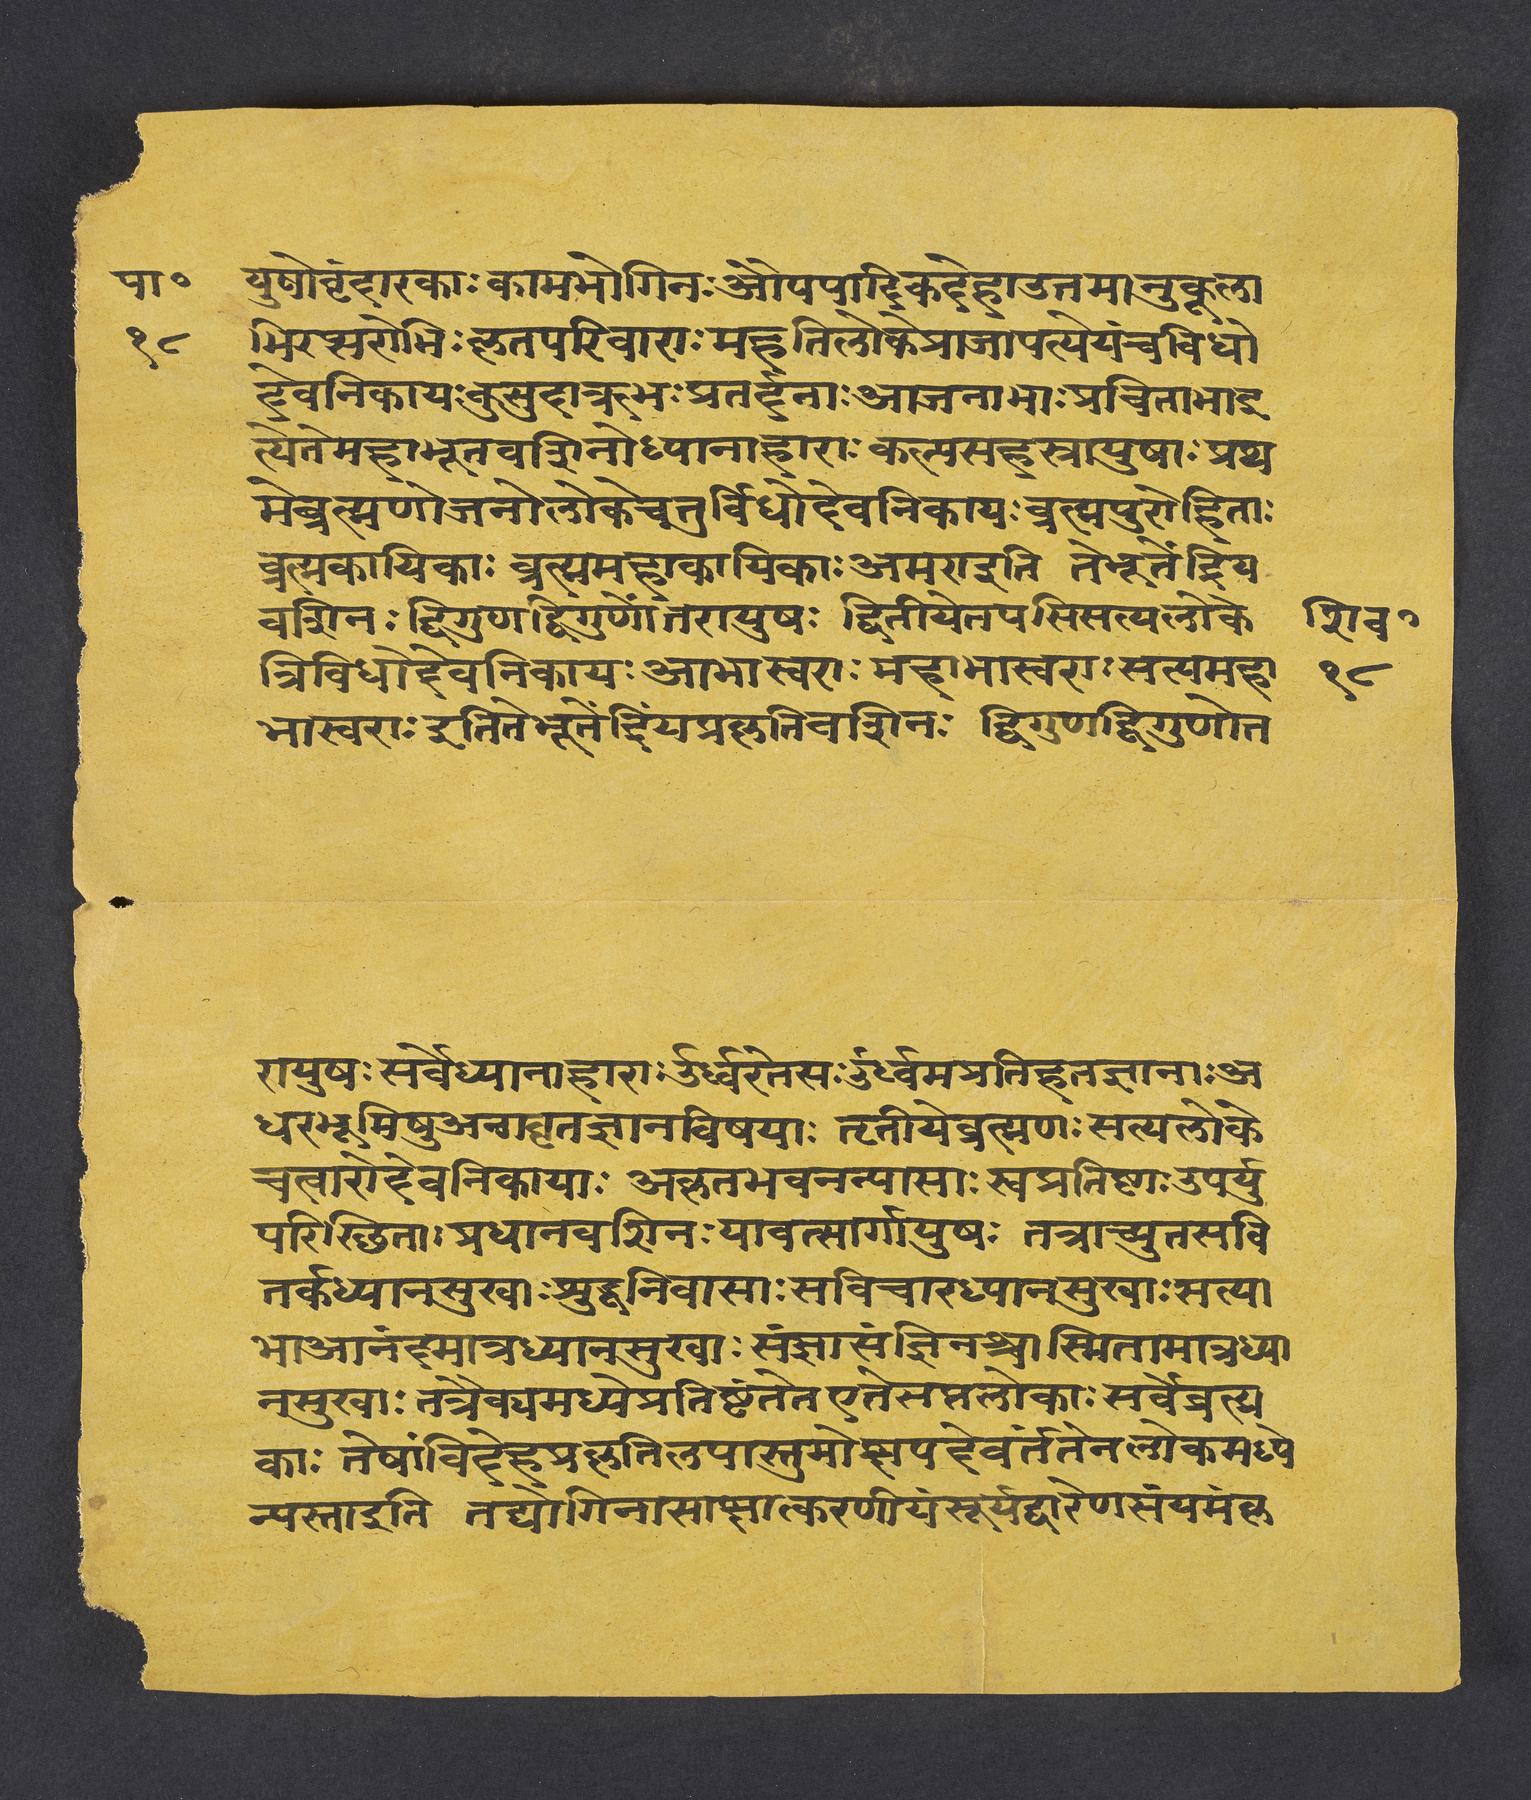 पा॰ युषोवृंदारकाः कामभोगिनः औपपादिकदेहाउतमानुकूला
१८ भिरप्सरोभिः कृतपरिवाराः महतिलोकेप्राजापत्येयंचविधो
देवनिकायः कुमुदाऋभः प्रतर्दनाः आजनाभाः प्रचिताभाइ
त्येतेमहाभूतवशिनोध्यानाहाराः कल्पसहस्रायुषाः प्रथ
मेब्रह्मणोजनोलोकेचतुर्विधोदेवनिकायः ब्रह्मपुरोहिताः
ब्रह्मकायिकाः ब्रह्ममहाकायिकाः अमराइति तेभूतेंद्रिय
वशिनः द्विगुणद्विगुणोतरायुषः द्वितीयेतपसिसत्यलोके शिव॰
त्रिविधोदेवनिकायः आभास्वराः महाभास्वराः सत्यमहा १८
भास्वराः इतितेभूतेंद्रियप्रकृतिवशिनः द्विगुणद्विगुणोत
रायुषः सर्वेध्यानाहाराः उर्ध्वरेतसः उर्ध्वमप्रतिहतज्ञानाः अ
धरभूमिषुअनावृतज्ञानविषयाः तृतीयेब्रह्मणः सत्यलोके
चत्वारोदेवनिकायाः अकृतभवनन्यासाः स्वप्रतिष्ठाः उपर्यु
परिस्थिताः प्रधानवशिनः यावत्सार्गायुषः तत्राच्युतसवि
तर्कध्यानसुखाः शुद्धनिवासाः सविचारध्यानसुखाः सत्या
भाआनंदमात्रध्यानसुखाः संज्ञासंज्ञिनश्चास्मितामात्रध्या
नसुखाः तत्रैक्यमध्येप्रतिष्ठंतेतएतेसप्तलोकाः सर्वेब्रत्म
काः तेषांविदेहप्रकृतिलपास्तुमोक्षपदेवर्ततेनलोकमध्ये
न्यस्ताइति तद्योगिनासाक्षात्करणीयंसूर्यद्वारेणसंयमंकृ